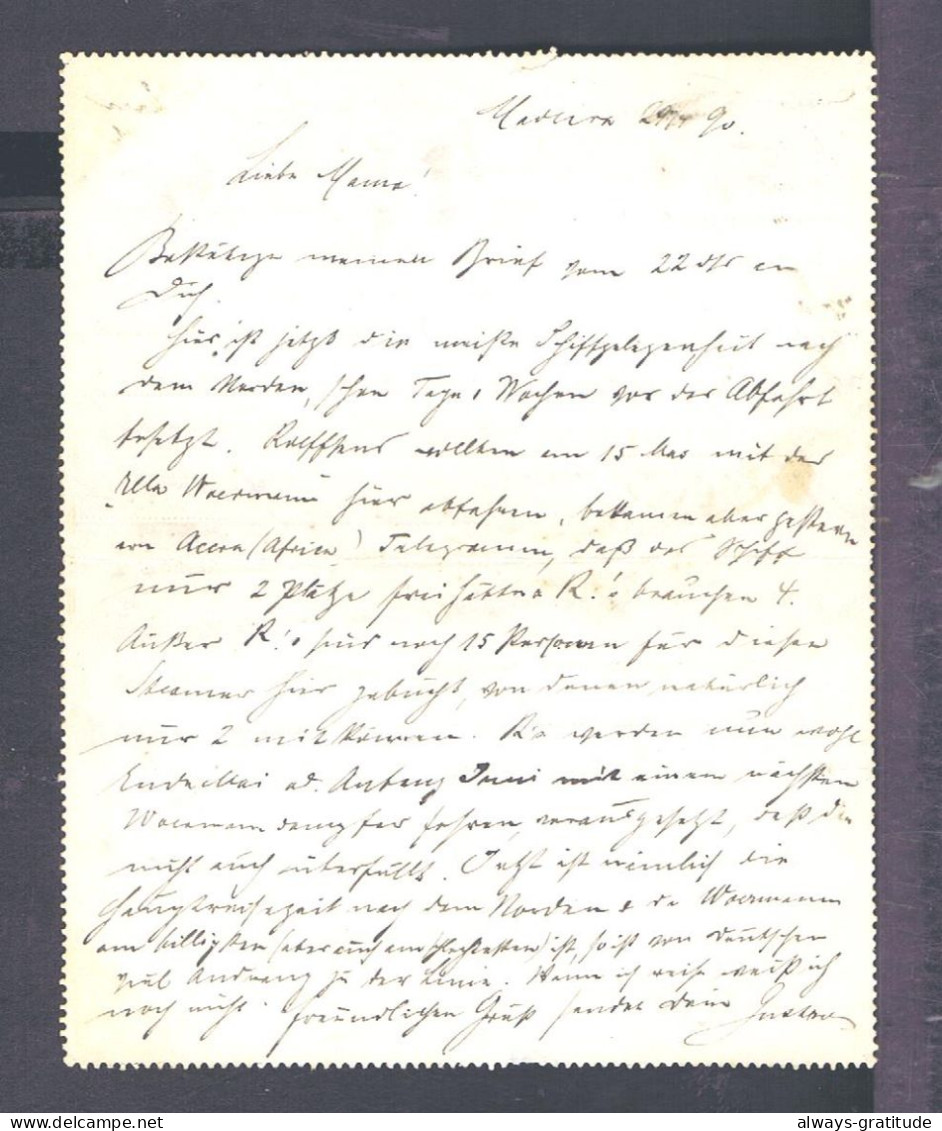 Madeira 29/4 90.
Liebe Mama!
Bestätige meinen Brief vom 22 ds an
Dich.
Hier ist jetzt die meiste Schiffsgelegenheit nach
dem Norden, schon Tage & Wochen vor der Abfahrt
besetzt. Rolffsens wollten am 15 Mai mit der
"Ella Woermann" hier abfahren, bekamen aber gestern
von Accra (Africa) Telegramm, daß das Schiff
nur 2 Plätze frei hätte & R.'s brauchen 4.
Außer R.'s sind noch 15 Personen für diesen
Steamer hier gebucht, von denen natürlich
nur 2 mitkönnen. R's werden nun wohl
Ende Mai od. Anfang Juni mit einem nächsten
Woermanndampfer fahren, vorausgesetzt, daß der
nicht auch überfüllt. Jetzt ist nämlich die
Hauptreisezeit nach dem Norden & da Woermann
am billigsten (aber auch am schlechtesten) ist, so ist von Deutschen
viel Andrang zu der Linie. Wann ich reise weiß ich
noch nicht. Freundlichen Gruß sendet Dein Gustav
always-gratitude